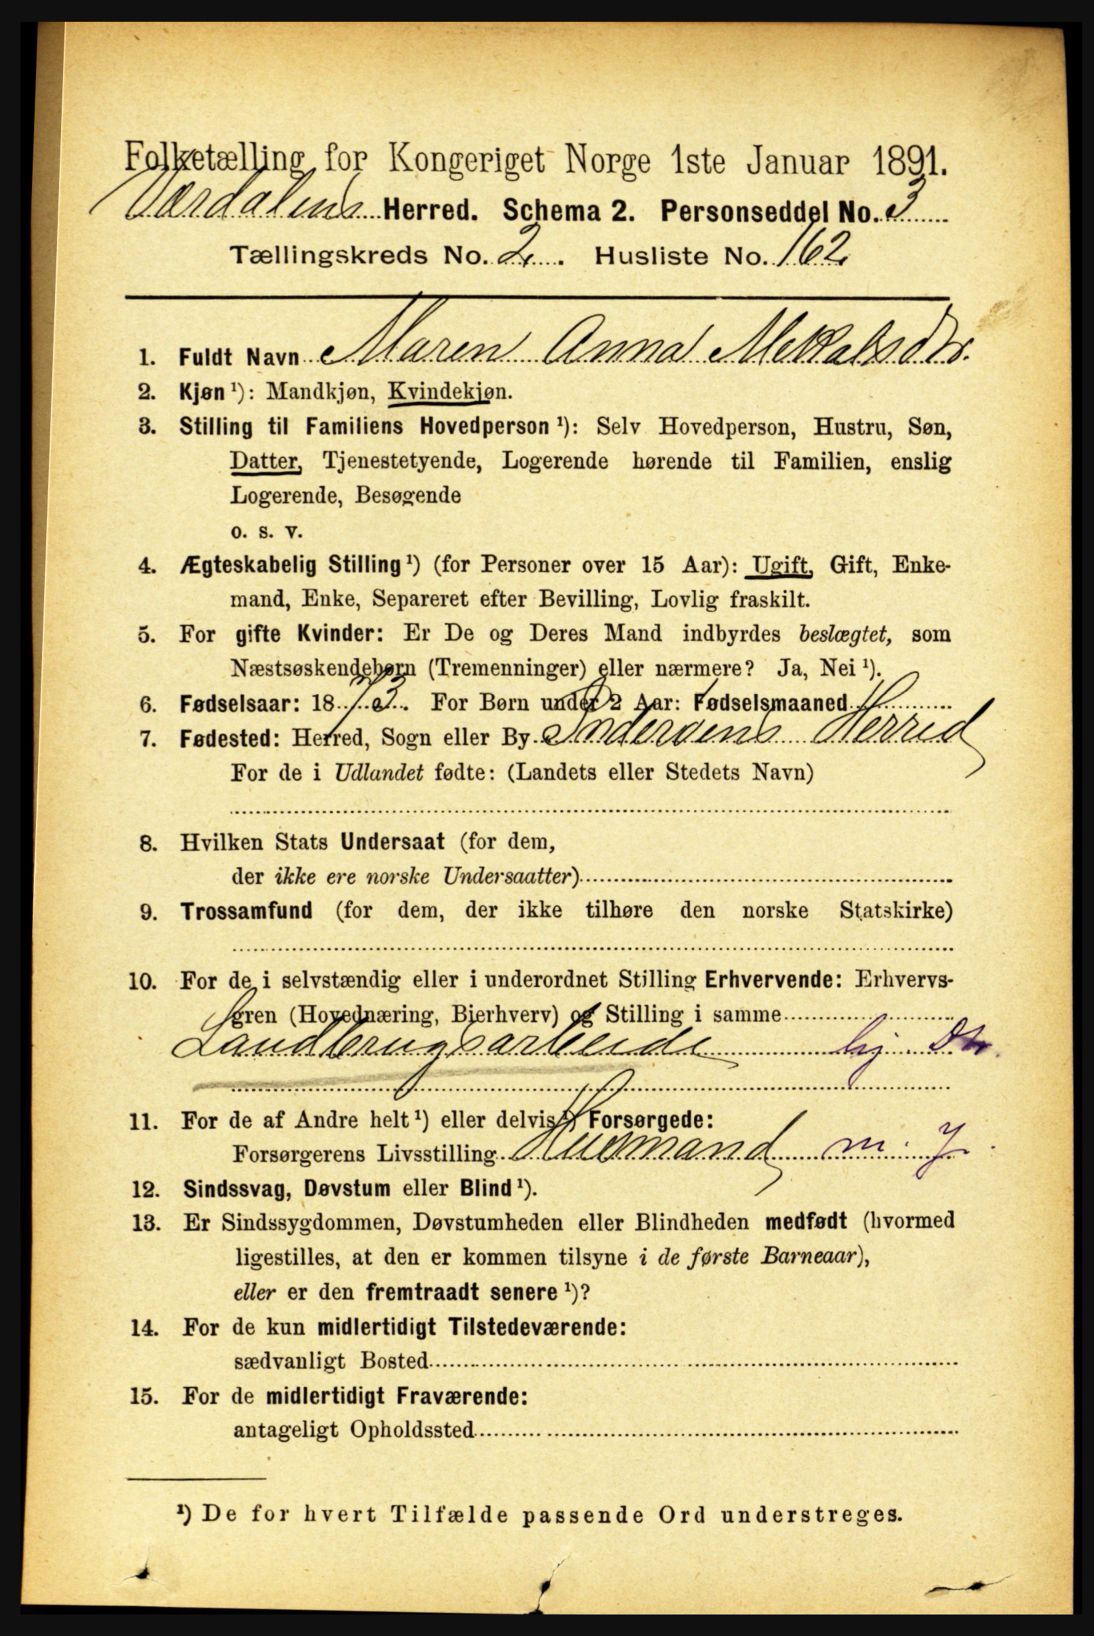 Folketælling for Kongeriget Norge 1ste Januar 1891.
Værdalens Herred. Schema 2. Personseddel No. 3
Tællingskreds No. 2. Husliste No. 162.
1. Fuldt Navn Maren Anna Mekalsdtr.
2. Kjøn ¹): Mandkjøn, Kvindekjøn.
3. Stilling til Familiens Hovedperson ¹): Selv Hovedperson, Hustru, Søn,
Datter, Tjenestetyende, Logerende hørende til Familien, enslig
Logerende, Besøgende
o. s. v.
4. Ægteskabelig Stilling ¹) (for Personer over 15 Aar): Ugift, Gift, Enke-
mand, Enke, Separeret efter Bevilling, Lovlig fraskilt.
5. For gifte Kvinder: Er De og Deres Mand indbyrdes beslægtet, som
Næstsøskendebørn (Tremenninger) eller nærmere? Ja, Nei ¹).
6. Fødselsaar: 1873. For Børn under 2 Aar: Fødselsmaaned
7. Fødested: Herred, Sogn eller By Inderøens Herred
For de i Udlandet fødte: (Landets eller Stedets Navn)
8. Hvilken Stats Undersaat (for dem,
der ikke ere norske Undersaatter)
9. Trossamfund (for dem, der ikke tilhøre den norske Statskirke)
10. For de i selvstændig eller i underordnet Stilling Erhvervende: Erhvervs-
gren (Hovednæring, Bierhverv) og Stilling i samme
Landbrugsarbeide hj. Dtr.
11. For de af Andre helt ¹) eller delvis ¹) Forsørgede:
Forsørgerens Livsstilling Husmand m. J.
12. Sindssvag, Døvstum eller Blind ¹).
13. Er Sindssygdommen, Døvstumheden eller Blindheden medfødt (hvormed
ligestilles, at den er kommen tilsyne i de første Barneaar),
eller er den fremtraadt senere ¹)?
14. For de kun midlertidigt Tilstedeværende:
sædvanligt Bosted
15. For de midlertidigt Fraværende:
antageligt Opholdssted
¹) De for hvert Tilfælde passende Ord understreges.